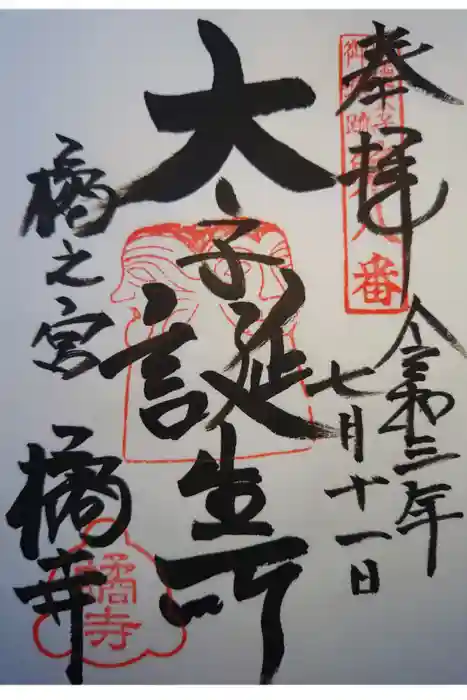 奉拝
令和三年
七月十一日
大子誕生所
橘之宮
橘寺
八番
橘寺